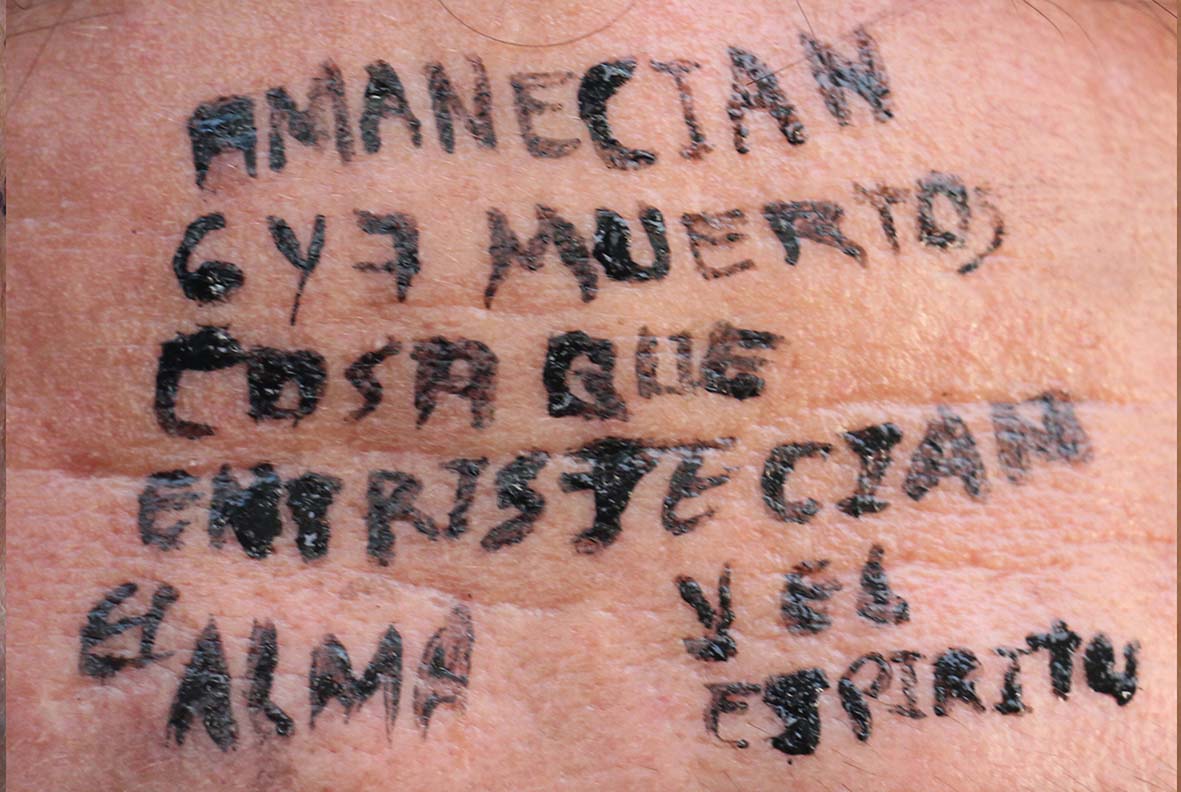 AMANECIAN
6 Y 7 MUERTOS
COSA QUE
ENTRISTECIAN
El ALMA
Y EL
ESPIRITU